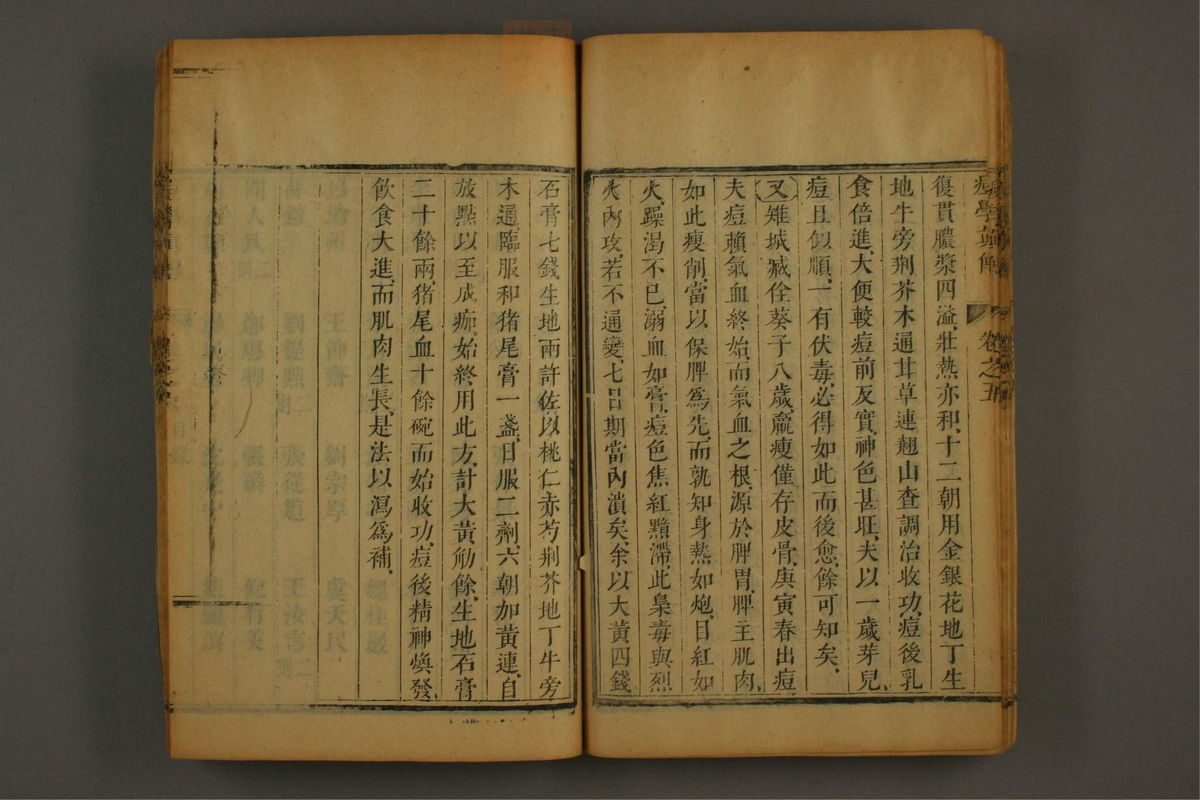 痘學真傳 卷之五
復貫膿漿四溢、壯熱亦和、十二朝用金銀花地丁生
地牛旁荆芥木通甘草連翹山查調治收功、痘後乳
食倍進、大便較痘前反實、神色甚旺、夫以一歲芽兒、
痘且似順、一有伏毒、必得如此而後愈、餘可知矣、
又雉城臧佺葵子八歲、羸瘦僅存皮骨、庚寅春出痘
夫痘賴氣血終始、而氣血之根、源於脾胃、脾主肌肉、
如此瘦削、當以保脾爲先、而孰知身熱如炮、目紅如
火、躁渴不已、溺血如膏、痘色焦紅黯滯、此梟毒與烈
火內攻、若不通變、七日期當內潰矣、余以大黃四錢
石膏七錢生地兩許、佐以桃仁赤芍荆芥地丁牛旁
木通、臨服和猪尾膏一盞、日服二劑、六朝加黃連、自
放點以至成痂、始終用此方、計大黃觔餘、生地石膏
三十餘兩、猪尾血十餘碗、而始收功、痘後精神煥發、
飲食大進、而肌肉生長、是法以瀉爲補、